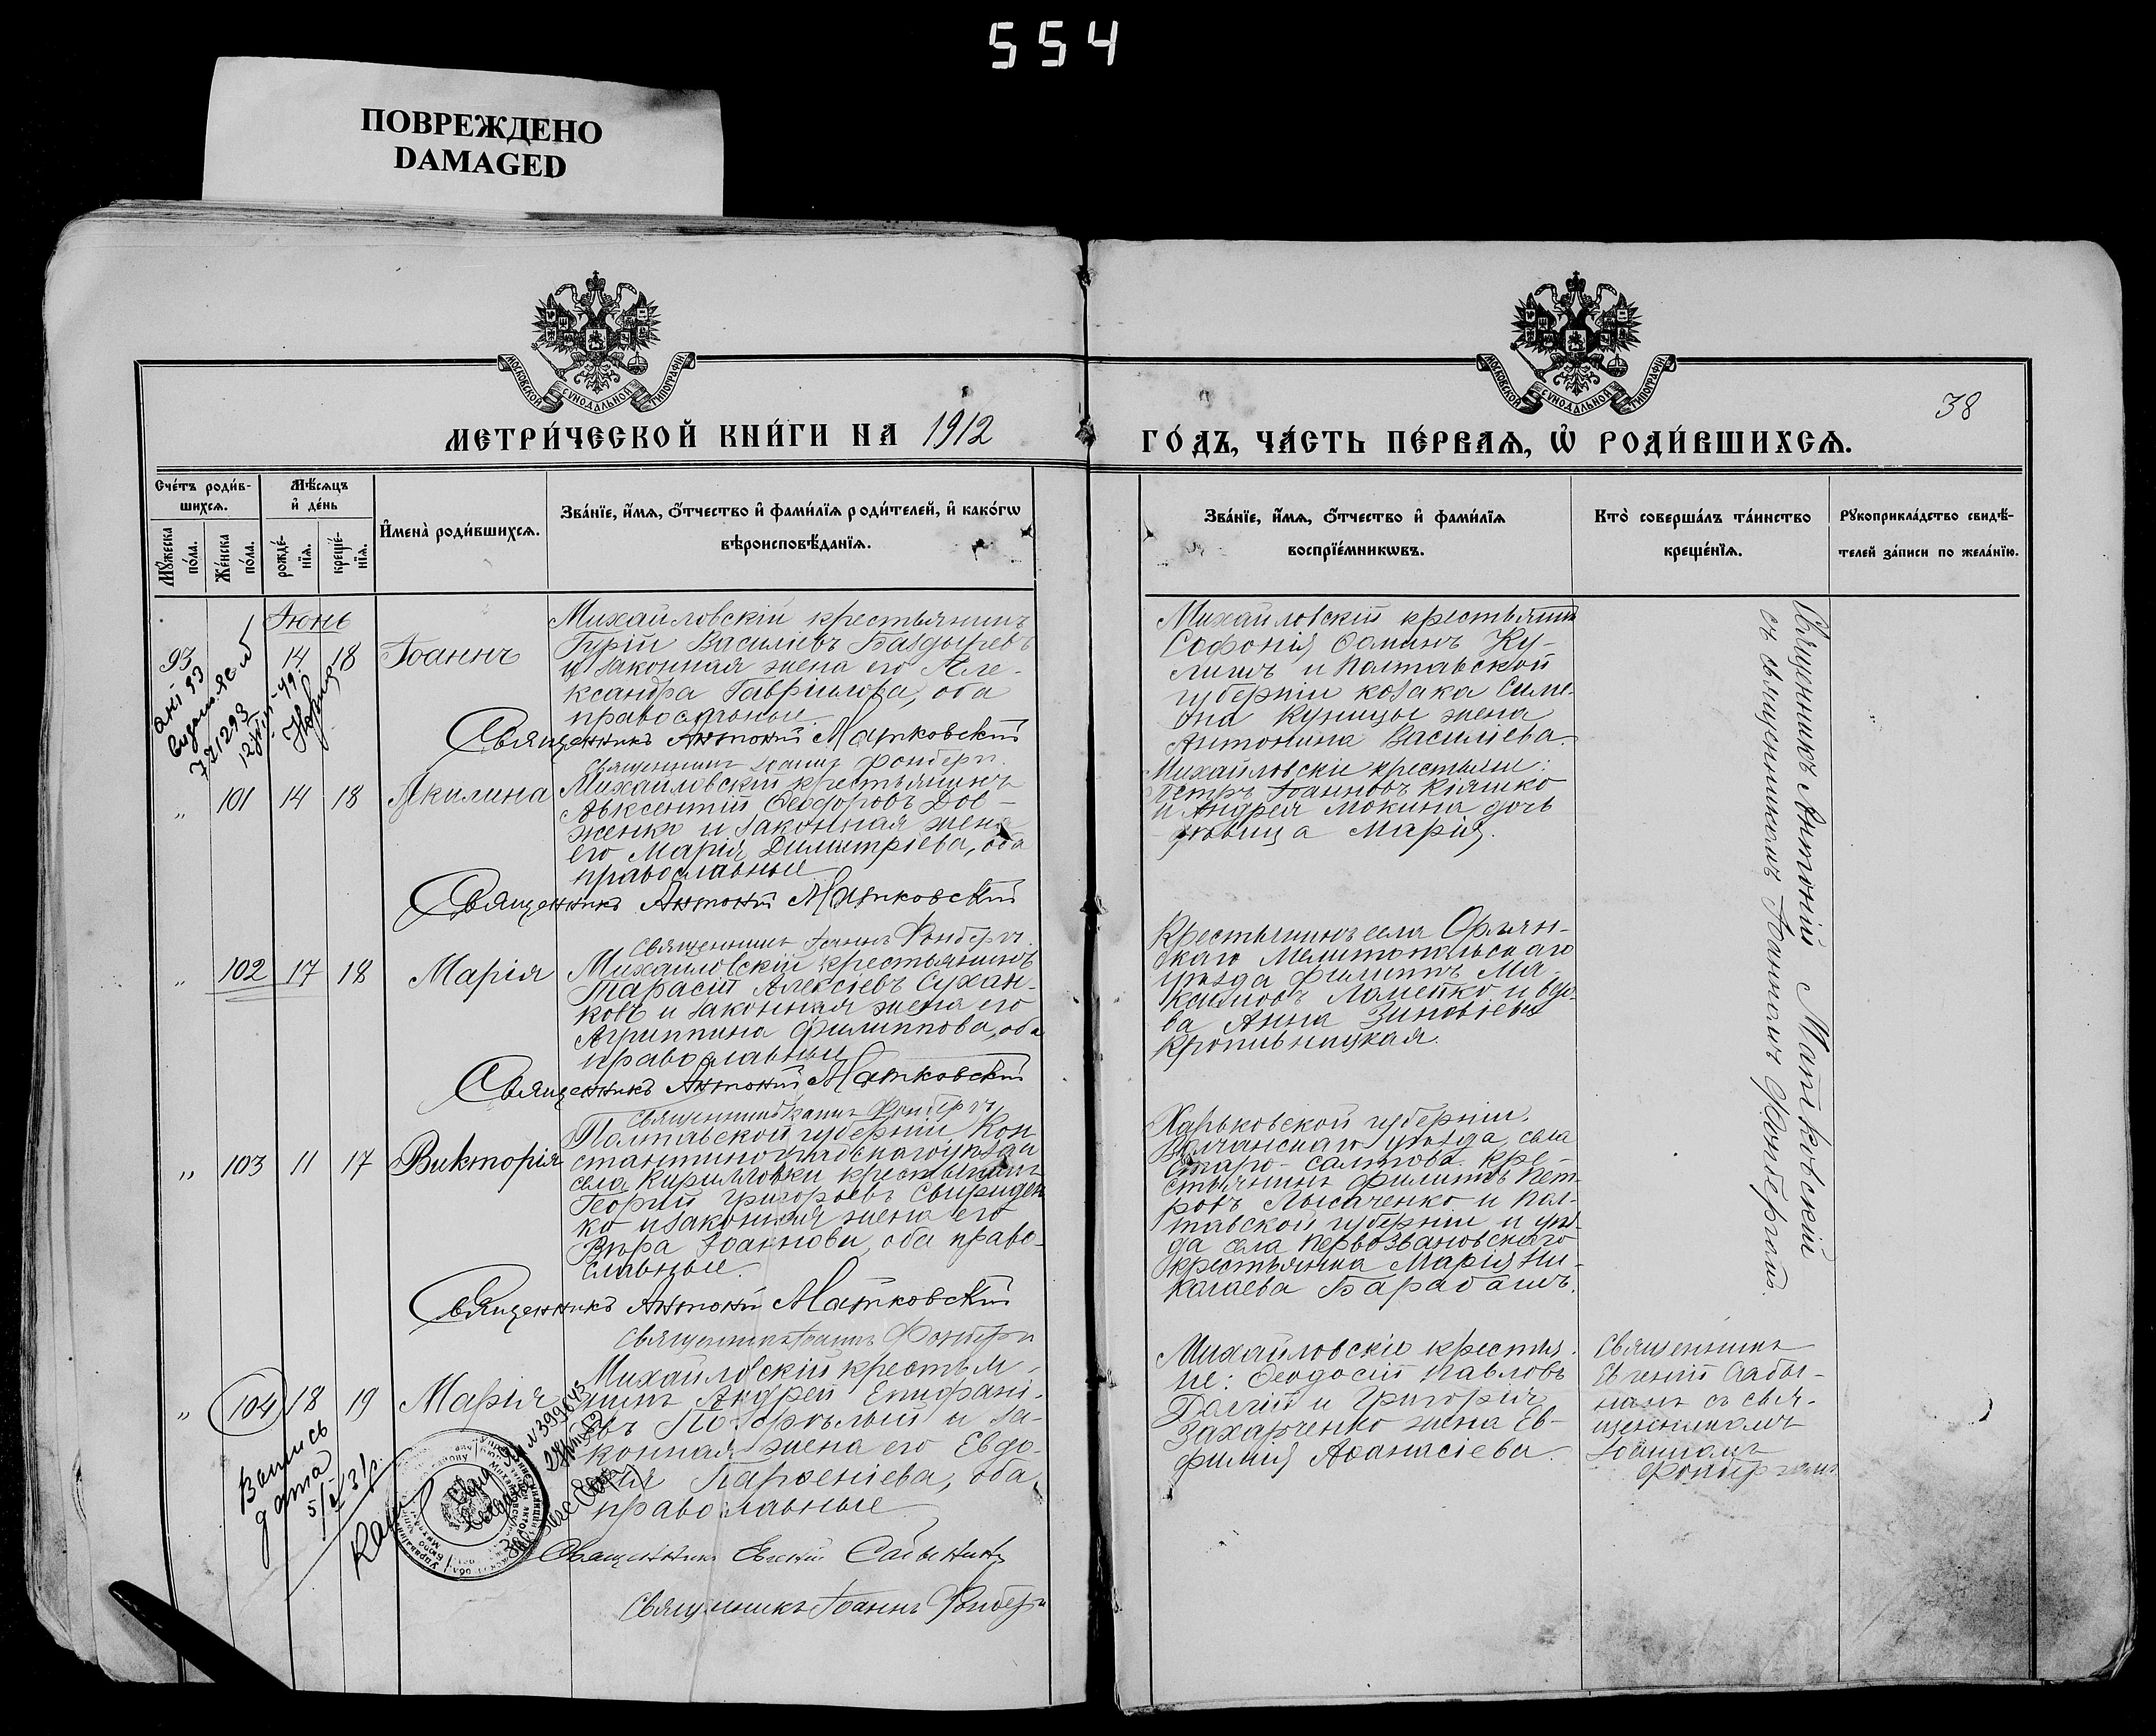 554
ПОВРЕЖДЕНО
DAMAGED
МОСКОВСКОЙ СѴНОДАЛЬНОЙ ТИПОГРАФІИ
МОСКОВСКОЙ СѴНОДАЛЬНОЙ ТИПОГРАФІИ
38
МЕТРИ́ЧЕСКОЙ КНИ́ГИ НА 1912
ГО́ДЪ, ЧА́СТЬ ПЕ́РВАѦ, Ѡ҆ РОДИ́ВШИХСѦ.
Сче́тъ роди́в-
шихсѧ.
Мꙋ́жеска по́ла.
Же́нска по́ла.
Мѣ́сѧцъ
и҆ де́нь
рожде́-
нїѧ.
креще́-
нїѧ.
И҆мена̀ роди́вшихсѧ.
Зва́нїе, и҆́мѧ, ѻ҆́тчество и҆ фами́лїѧ роди́телей, и҆ како́гѡ
вѣроисповѣ́данїѧ.
Зва́нїе, и҆́мѧ, ѻ҆́тчество и҆ фами́лїѧ
воспрїе́мникѡвъ.
Кто̀ соверша́лъ та́инство
креще́нїѧ.
Рꙋкоприкла́дство свидѣ́-
телей за́писи по жела́нїю.
Іюнь
93 14 18 Іоаннъ
Михайловскій крестьянинъ
Гурій Василіевъ Баздыревъ
и законная жена его Але-
ксандра Гавріилова, оба
православные.
Священникъ Антоній Матковскій
Священникъ Іоаннъ Фонбергъ
Михайловскій крестьянинъ
Софонія Ѳоминъ Ку-
лишъ и Полтавской
губерніи козака Симе-
она Куницы жена
Антонина Василіева.
" 101 14 18 Акилина
Михайловскій крестьянинъ
Авксентій Ѳеодоровъ Дов-
женко и законная жена
его Марія Димитріева, оба
православные
Священникъ Антоній Матковскій
Священникъ Іоаннъ Фонбергъ
Михайловскіе крестьяне:
Петръ Іоанновъ Кіяшко
и Андрея Мокина дочь
дѣвица Марія.
" 102 17 18 Марія
Михайловскій крестьянинъ
Тарасій Алексіевъ Сухан-
ковъ и законная жена его
Агриппина Филиппова, оба
православные
Священникъ Антоній Матковскій
Священникъ Іоаннъ Фонбергъ
Крестьянинъ села Орлян-
скаго Мелитопольскаго
уѣзда Филиппъ Ма-
ксимовъ Ломейко и вдо-
ва Анна Зиновіева
Кропивницкая.
" 103 11 17 Викторія
Полтавской губерніи, Кон
стантиноградскаго уѣзда
села Кирилловки крестьянинъ
Георгій Григорьевъ Свириден
ко и законная жена его
Вѣра Іоаннова, оба право-
славные.
Священникъ Антоній Матковскій
Священникъ Іоаннъ Фонбергъ
Харьковской губерніи,
Волчанскаго уѣзда, села
Старо-Салтова кре-
стьянинъ Филиппъ Пет-
ровъ Лысаченко и Пол-
тавской губерніи и уѣз-
да села Первозвановскаго
крестьянка Марія Ни-
колаева Барабашъ.
Священникъ Антоній Матковскій
съ священникомъ Іоанномъ Фонбергомъ.
" 104 18 19 Марія
Михайловскій крестья-
нинъ Андрей Епифані-
евъ Погорѣлый и за-
конная жена его Евдо-
кія Парѳеніева, оба
православные
Священникъ Евгеній Сабынинъ
Священникъ Іоаннъ Фонбергъ
Михайловскіе крестья-
не: Ѳеодосій Павловъ
Долгій и Григорія
Захарченко жена Ев-
фимія Аѳанасіева.
Священникъ
Евгеній Сабы-
нинъ съ свя-
щенникомъ
Іоанномъ
Фонбергомъ